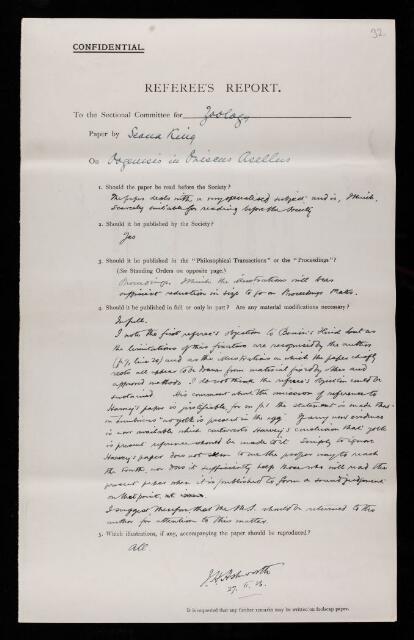 32.
CONFIDENTIAL.
REFEREE'S REPORT.
To the Sectional Committee for Zoology
Paper by Seana King
On Oogenesis in Oniscus Asellus
1. Should the paper be read before the Society?
The paper deals with a very specialised subject and is, I think,
scarcely suitable for reading before the Society
2. Should it be published by the Society?
Yes
3. Should it be published in the "Philosophical Transactions" or the "Proceedings"?
(See Standing Orders on opposite page.)
Proceedings. I think the illustrations will bear
sufficient reduction in size to go on Proceedings Plates.
4. Should it be published in full or only in part? Are any material modifications necessary?
In full.
I note the first referee's objection to Bouin's fluid but as
the limitations of this fixative are recognised by the author
(p. 7, line 20) and as the illustrations on which the paper chiefly
rests all appear to be drawn from material fixed by other and
approved methods I do not think the referee's objection could be
sustained. His comment about the omission of reference to
Harvey's paper is justifiable for on p. 1 the statement is made that
in Lumbricus "no yolk is present in the egg". If any new evidence
is now available which controverts Harvey's conclusion that yolk
is present reference should be made to it. Simply to ignore
Harvey's paper does not seem to me the proper way to reach
the truth, nor does it sufficiently help those who will read the
present paper when it is published to form a sound judgment
on that point.
I suggest, therefore, that the M.S. should be returned to the
author for attention to this matter.
5. Which illustrations, if any, accompanying the paper should be reproduced?
All
J. H. Ashworth
It is requested that any further remarks may be written on foolscap paper.